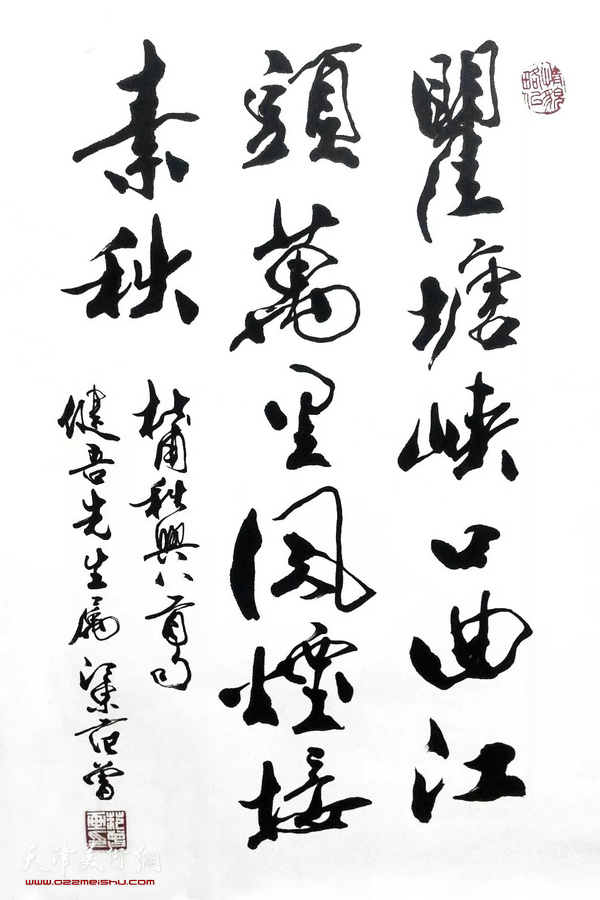 瞿塘峡口曲江
頭萬里风煙接
素秋
杜甫秋興八首句
健吾先生属 江東范曾
天津美术网
www.022meishu.com